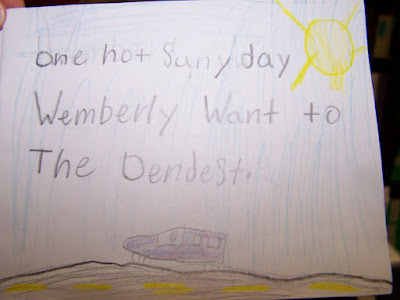 one hot Suny day
Wemberly Want to
The Dendest.